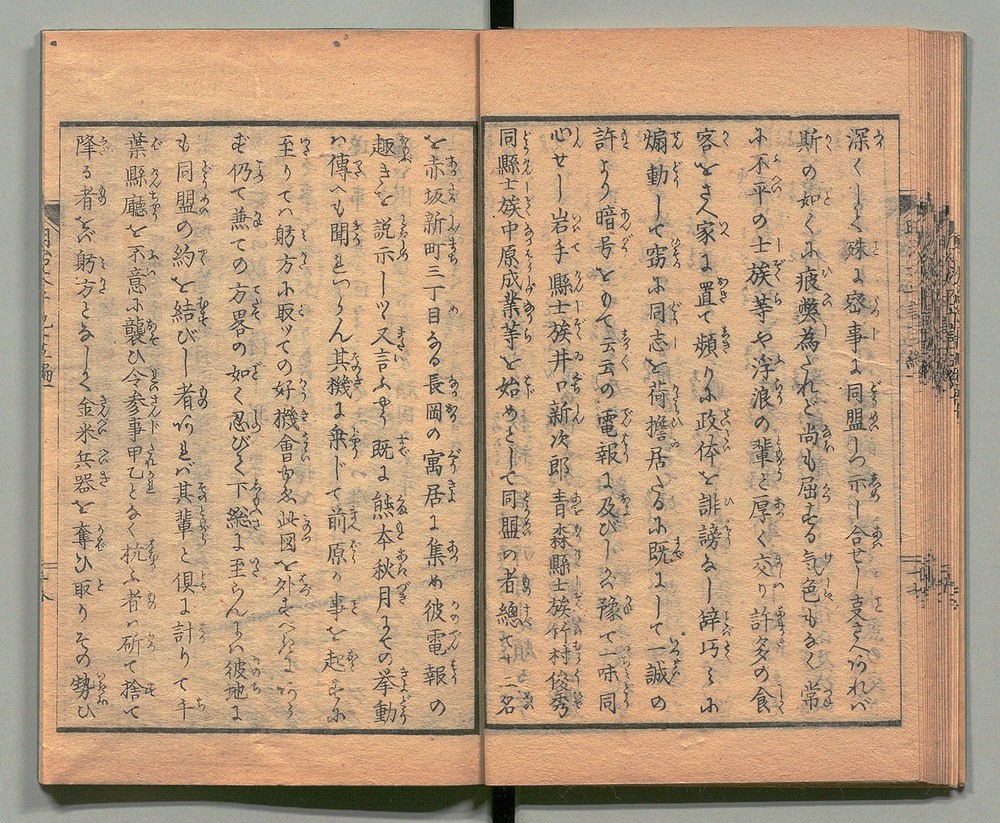 深くして殊に密事に同盟しつ示し合せし支さへあれバ
斯の如くに疲弊為されど尚も屈する気色もなく常
に不平の士族等や浮浪の輩と厚く交り許多の食
客をさへ家に置て頻りに政体を誹謗なし辞巧ミに
煽動して窃に同志を荷擔居たるに既にして一誠の
許より暗号をもて云云の電報に及びしかバ豫て一味同
心せし岩手縣士族井口新次郎青森縣士族竹村俊秀
同縣士族中原成業等を始めとして同盟の者總て十二名
を赤坂新町三丁目なる長岡の寓居に集め彼電報の
趣きを説示しツヽ又言ふやう既に熊本秋月まその挙動
ハ傳へも聞れつらん其機に乗じて前原が事を起すに
至りてハ躬方に取ツての好機會ゆゑ此図を外すべからず
仍て兼ての方畧の如く忍び〳〵下総に至らんにハ彼地に
も同盟の約を結びし者あれバ其輩と倶に計りて千
葉縣廳を不意に襲ひ令参事甲乙となく抗ふ者ハ斫て捨て
降る者をバ躬方となして金米兵器を奪ひ取りその勢ひ